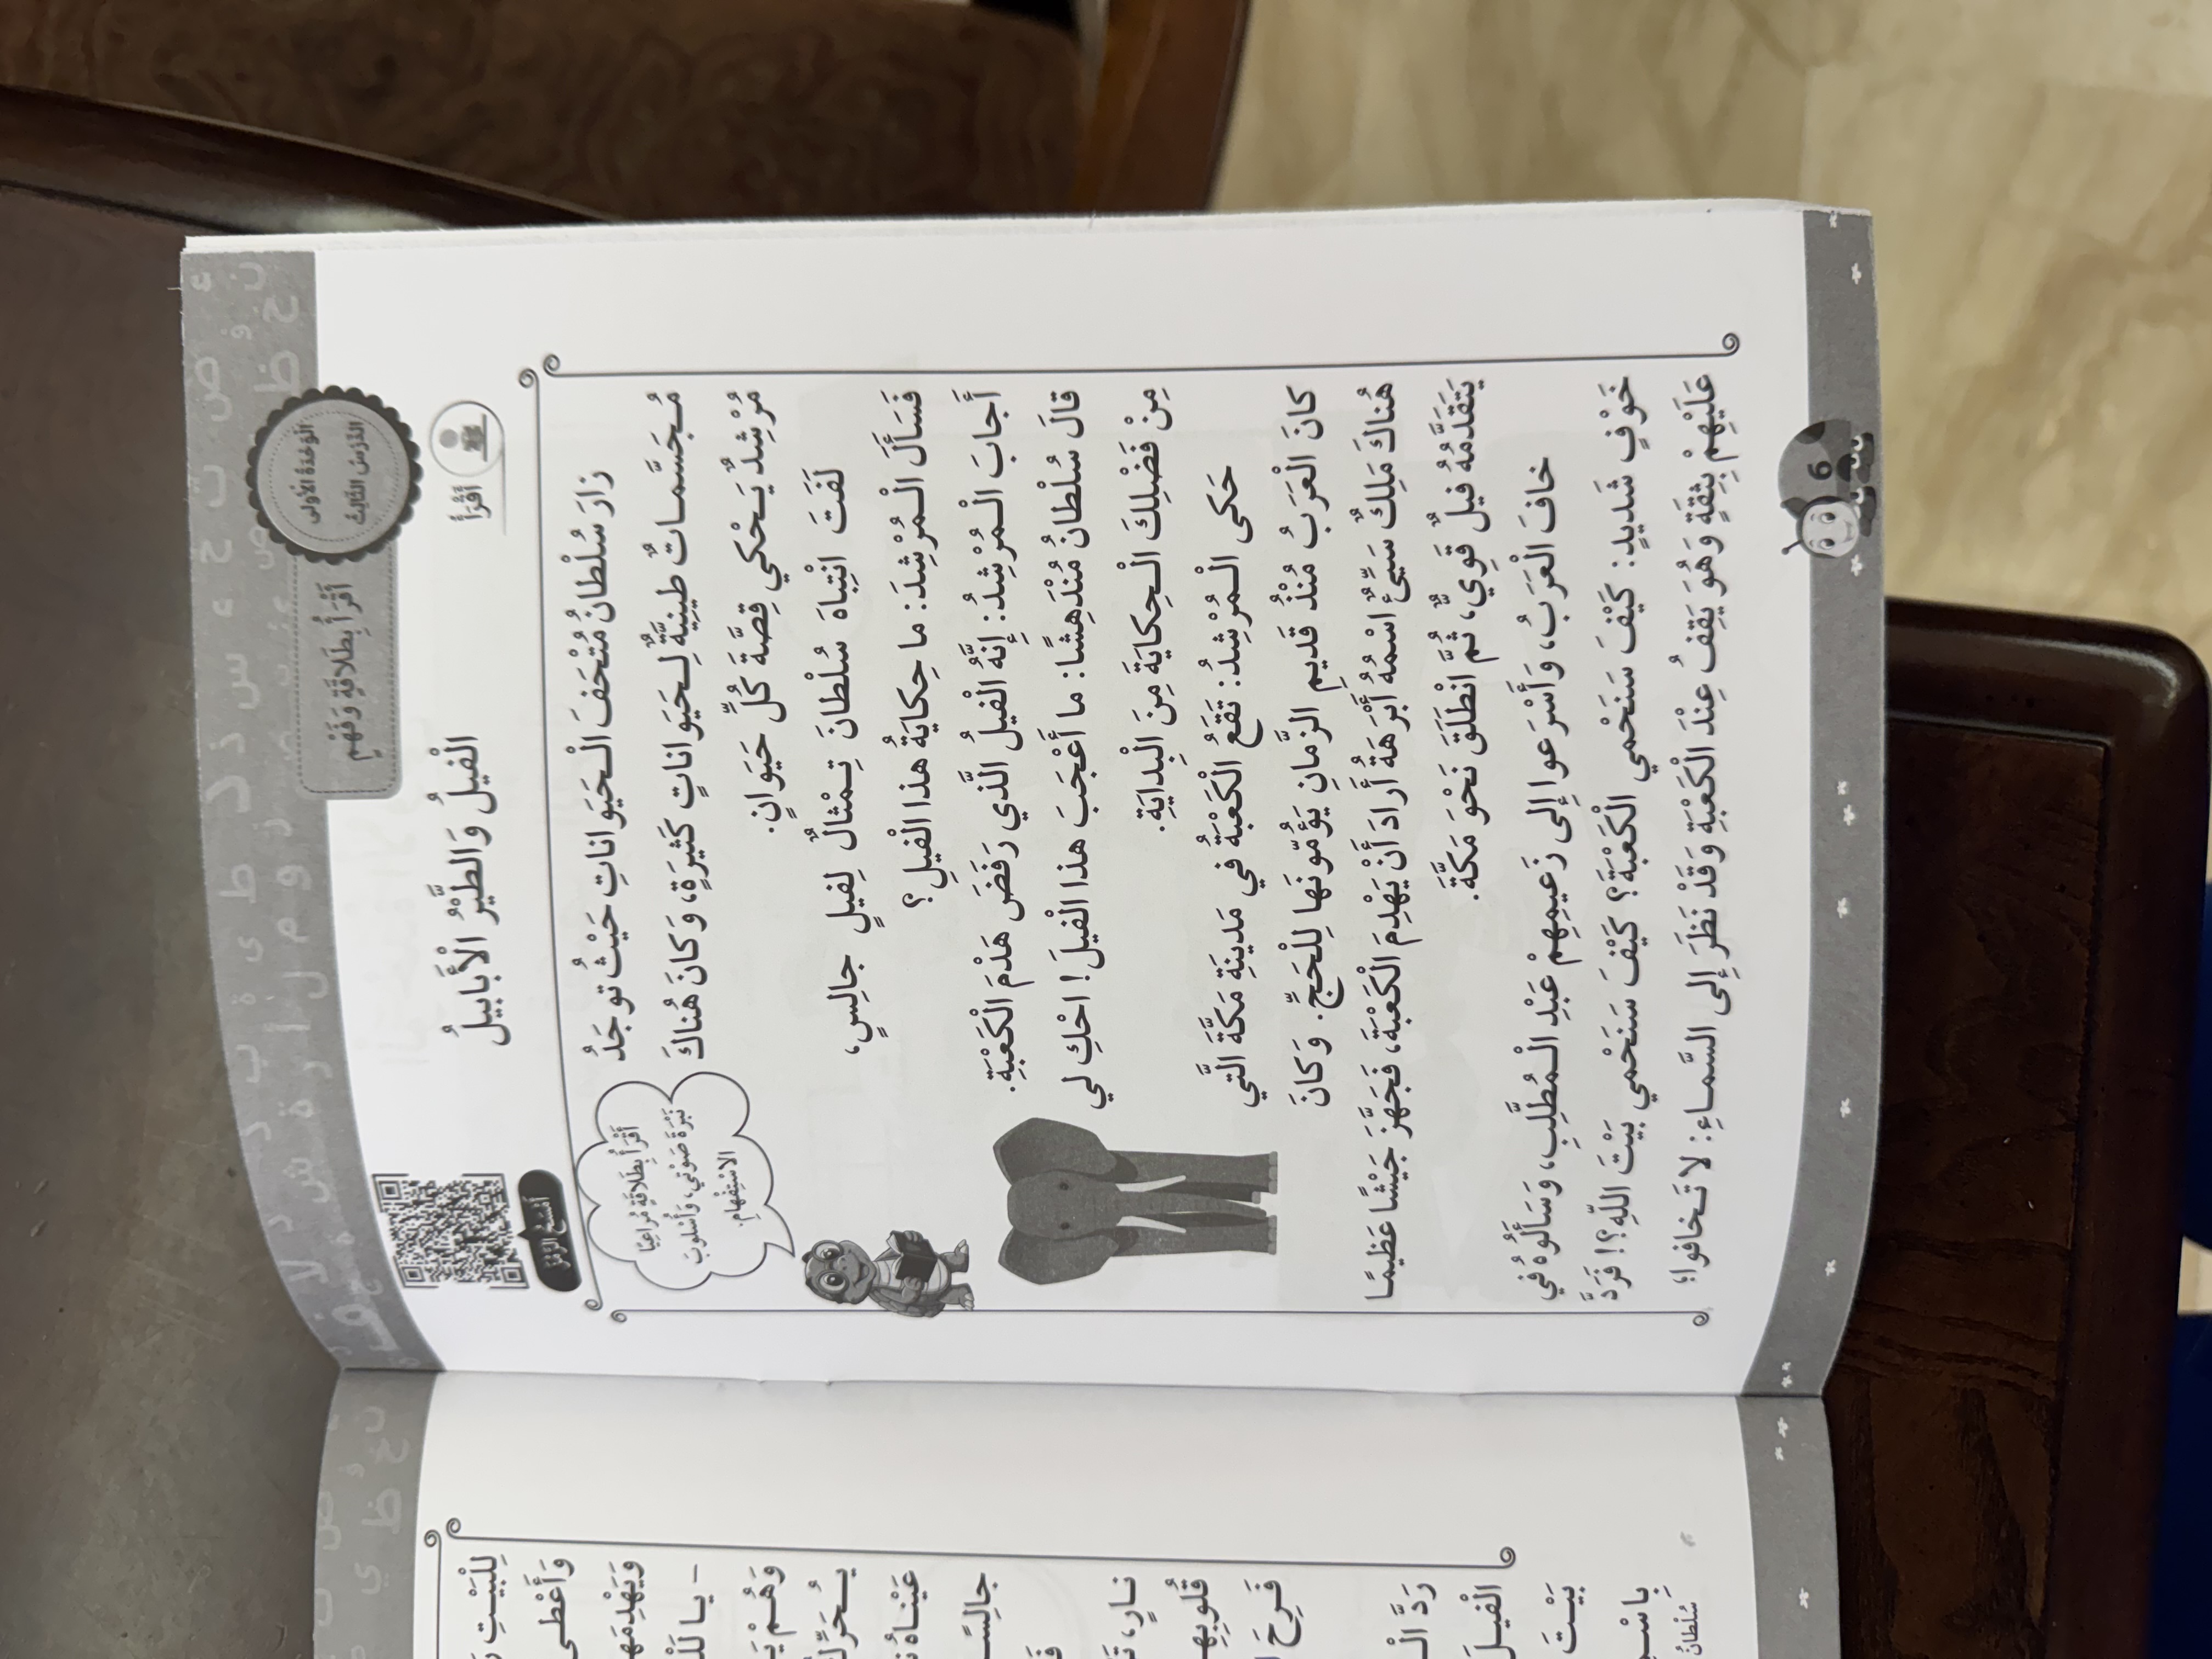 الْوَحْدَةُ الْأولى
الدَّرْسُ الثّالِثُ
أَقْرَأُ بِطَلاقَةٍ وَفَهْمٍ
أَقْرَأُ
الْفيلُ وَالطَّيْرُ الْأَبابيلُ
أَمْسَحُ الرَّمْزَ
زارَ سُلْطانُ مُتْحَفَ الْحَيَواناتِ حَيْثُ توجَدُ
مُجَسَّماتٌ طينِيَّةٌ لِحَيَواناتٍ كَثيرَةٍ، وَكانَ هُناكَ
مُرْشِدٌ يَحْكي قِصَّةَ كُلِّ حَيَوانٍ.
لَفَتَ انْتِباهَ سُلْطانَ تِمْثالٌ لِفيلٍ جالِسٍ،
فَسَأَلَ الْمُرْشِدَ: ما حِكايَةُ هذا الْفيلِ؟
أَجابَ الْمُرْشِدُ: إِنَّهُ الْفيلُ الَّذي رَفَضَ هَدْمَ الْكَعْبَةِ.
قالَ سُلْطانُ مُنْدَهِشًا: ما أَعْجَبَ هذا الْفيلَ! احْكِ لي
مِنْ فَضْلِكَ الْحِكايَةَ مِنَ الْبِدايَةِ.
حَكى الْمُرْشِدُ: تَقَعُ الْكَعْبَةُ في مَدينَةِ مَكَّةَ الَّتي
كانَ الْعَرَبُ مُنْذُ قَديمِ الزَّمانِ يَؤُمّونَها لِلْحَجِّ. وَكانَ
هُناكَ مَلِكٌ سَيِّئٌ اسْمُهُ أَبْرَهَةُ أَرادَ أَنْ يَهْدِمَ الْكَعْبَةَ، فَجَهَّزَ جَيْشًا عَظيمًا
يَتَقَدَّمُهُ فيلٌ قَوِيٌّ، ثُمَّ انْطَلَقَ نَحْوَ مَكَّةَ.
خافَ الْعَرَبُ، وَأَسْرَعوا إِلى زَعيمِهِمْ عَبْدِ الْمُطَّلِبِ، وَسَأَلُوهُ في
خَوْفٍ شَديدٍ: كَيْفَ سَنَحْمي الْكَعْبَةَ؟ كَيْفَ سَنَحْمي بَيْتَ اللّهِ؟! فَرَدَّ
عَلَيْهِمْ بِثِقَةٍ وَهُوَ يَقِفُ عِنْدَ الْكَعْبَةِ وَقَدْ نَظَرَ إِلى السَّماءِ: لا تَخافوا؛
أَقْرَأُ بِطَلاقَةٍ مُراعِيًا
نَبْرَةَ صَوْتي، وَأُسْلوبَ
الاسْتِفْهامِ.
6
لِلْبَيْتِ
وَأَعْطى
وَيَهْدِمَها
وَهُمْ
عَيْناهُ
نارٍ،
فَرِحَ
رَدَّ
الْفيلَ
بَيْتَ
سُلْطانُ